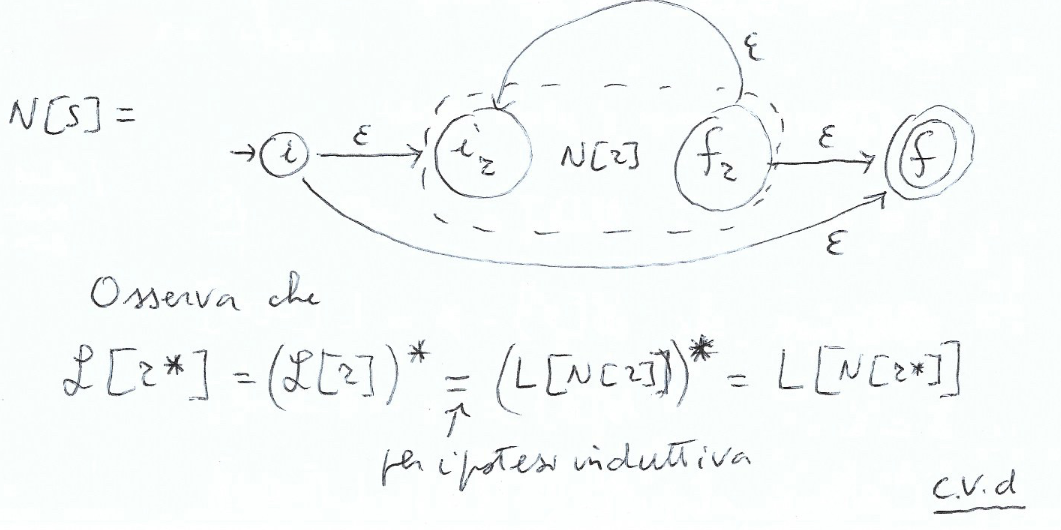 ε
N[s] =
→ i ε i_r N[r] f_r ε f
ε
Osserva che
ℒ[r*] = (ℒ[r])* = (L[N[r]])* = L[N[r*]]
↑
per ipotesi induttiva
c.v.d